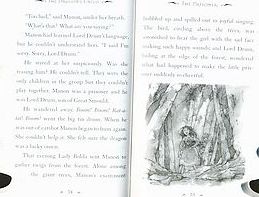 "Too bad," said Manon, under her breath.
"What's that? What are you saying?"
Manon had learned Lord Drum's language,
but he couldn't understand hers. "I said I'm
sorry, Lord Drum."
He stared at her suspiciously. Was she
teasing him? He couldn't tell. They were the
only children in the group but they couldn't
play together. Manon was a prisoner and he
was Lord Drum, son of Great Strould.
He wandered away. Boom! Boom! Rat-a-
tat! Boom! went the big tin drum. When he
was out of earshot Manon began to hum again.
She couldn't help it. She felt sure the dragon
was a lucky omen.
That evening Lady Fedila sent Manon to
gather twigs from the forest. Alone among
the giant trees, Manon's excitement
24
THE PRISONER
bubbled up and spilled out in joyful singing.
The bird, circling above the trees, was
astonished to hear the girl with the sad face
making such happy sounds and Lord Drum,
looking at the edge of the forest, wondered
what had happened to make the little pris-
oner suddenly so cheerful.
25